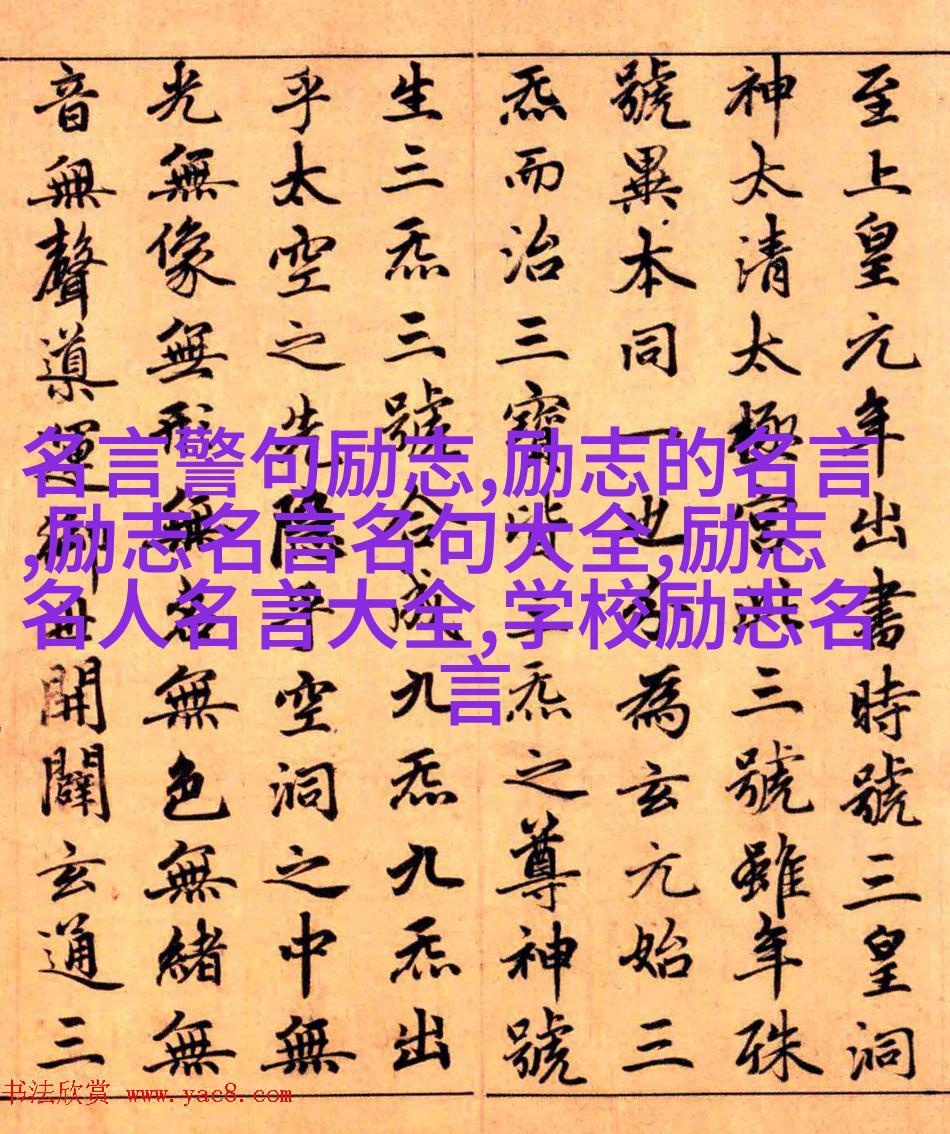 至上皇元年出書時號三皇洞
神太清太極宮其三號雖年殊
號異本同一也分為玄元始三
炁而治三寶皆三炁之尊神號
生三炁三號合成九炁九炁出
乎太空之先隱乎空洞之中無
光無像無形無名無色無緒無
音無聲導運御世開闢玄通三
名言警句励志,励志的名言
,励志名言名句大全,励志
名人名言大全,学校励志名
言
书法欣赏 www.yac8.com